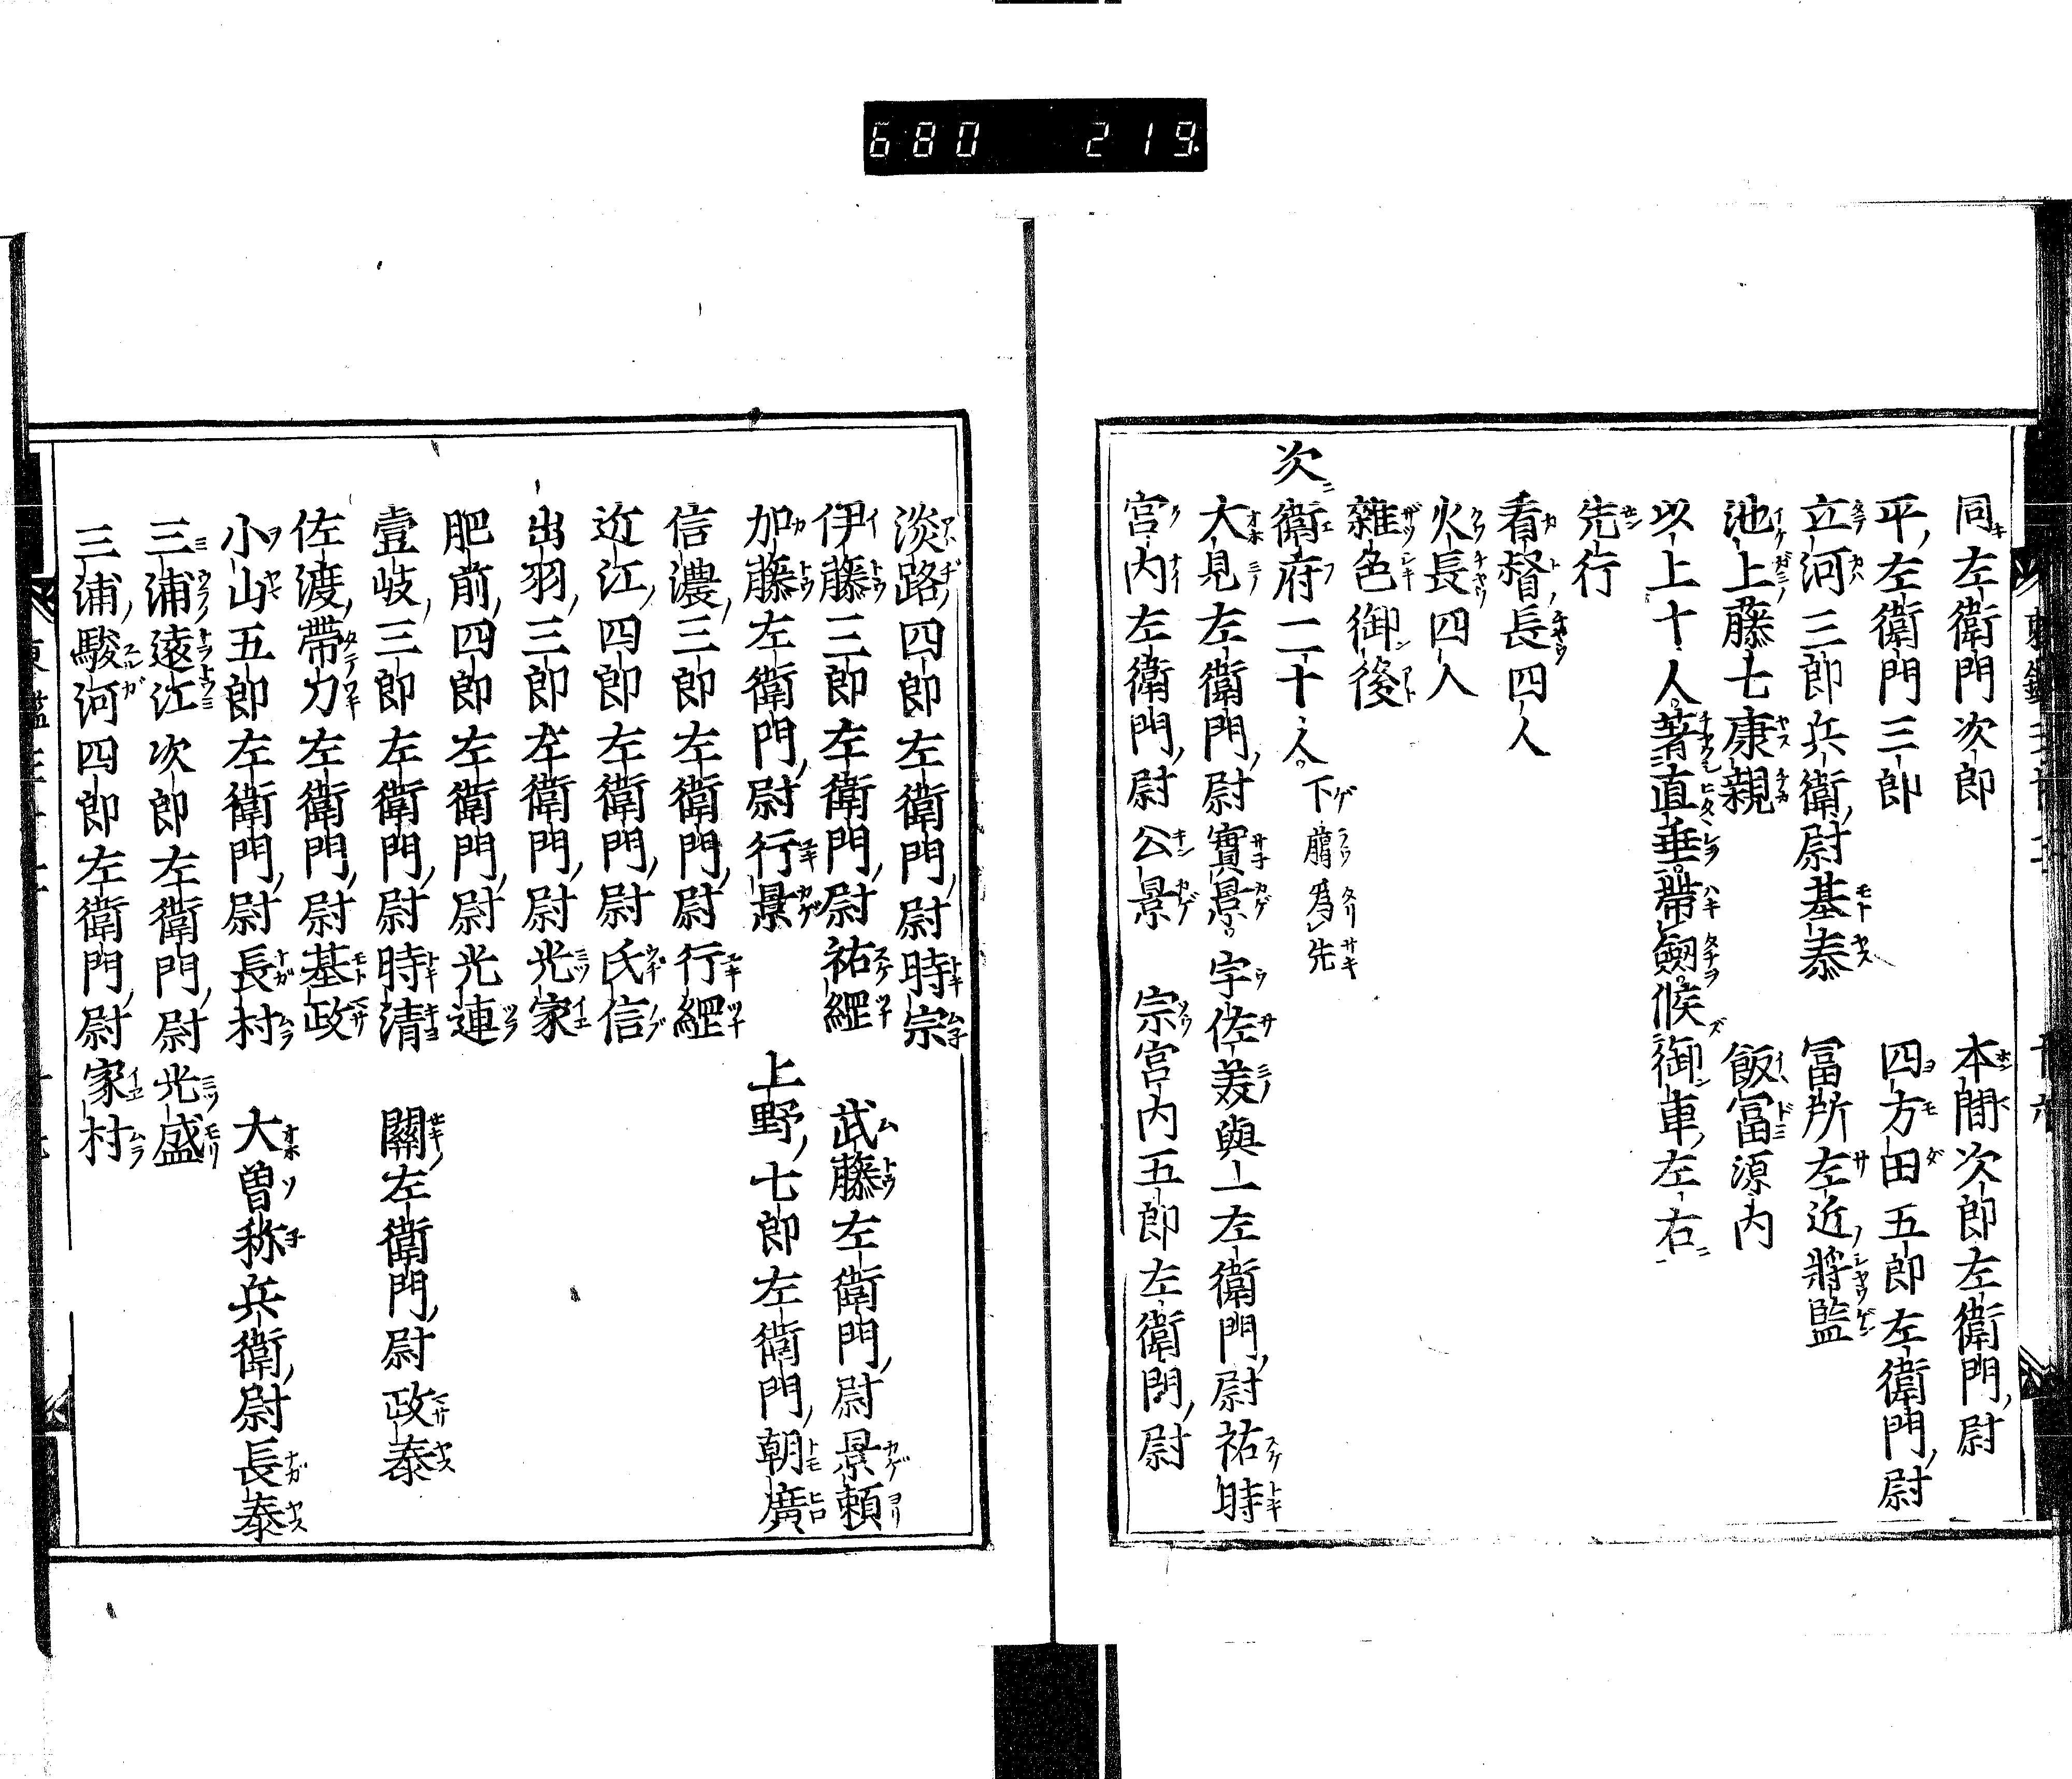 680 219
同左衛門次郎 本間次郎左衛門尉
平左衛門三郎 四方田五郎左衛門尉
立河三郎兵衛尉基泰 冨所左近將監
池上藤七康親 飯冨源内
以上十人。著直垂帶劔。候御車左右
先行
看督長四人
火長四人
雜色御後
次衛府二十人。下﨟為先
大見左衛門尉實景。宇佐美與一左衛門尉祐時
宮内左衛門尉公景 宗宮内五郎左衛門尉
淡路四郎左衛門尉時宗
伊藤三郎左衛門尉祐綱 武藤左衛門尉景頼
加藤左衛門尉行景 上野七郎左衛門朝廣
信濃三郎左衛門尉行綱
近江四郎左衛門尉氏信
出羽三郎左衛門尉光家
肥前四郎左衛門尉光連
壹岐三郎左衛門尉時清 關左衛門尉政泰
佐渡帶刀左衛門尉基政
小山五郎左衛門尉長村 大曽祢兵衛尉長泰
三浦遠江次郎左衛門尉光盛
三浦駿河四郎左衛門尉家村